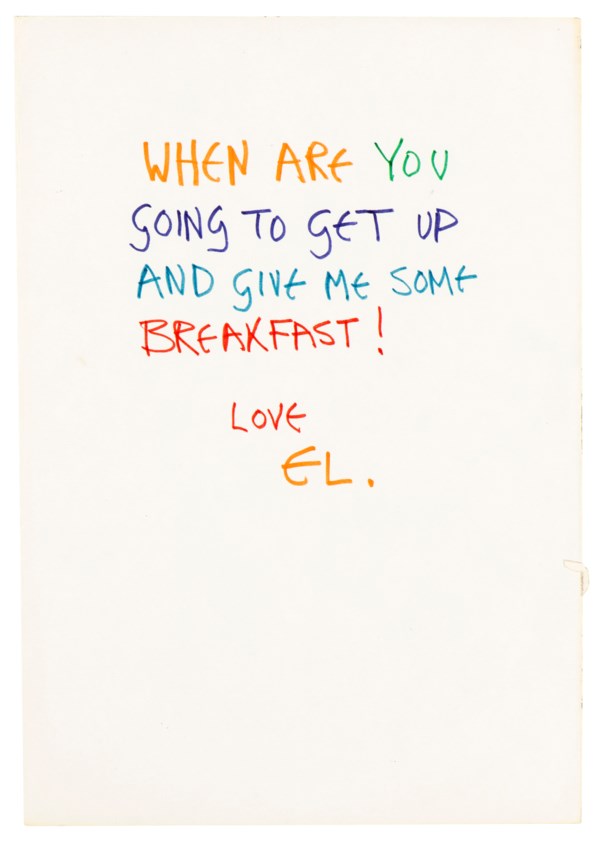 WHEN ARE YOU
GOING TO GET UP
AND GIVE ME SOME
BREAKFAST!
LOVE
EL.